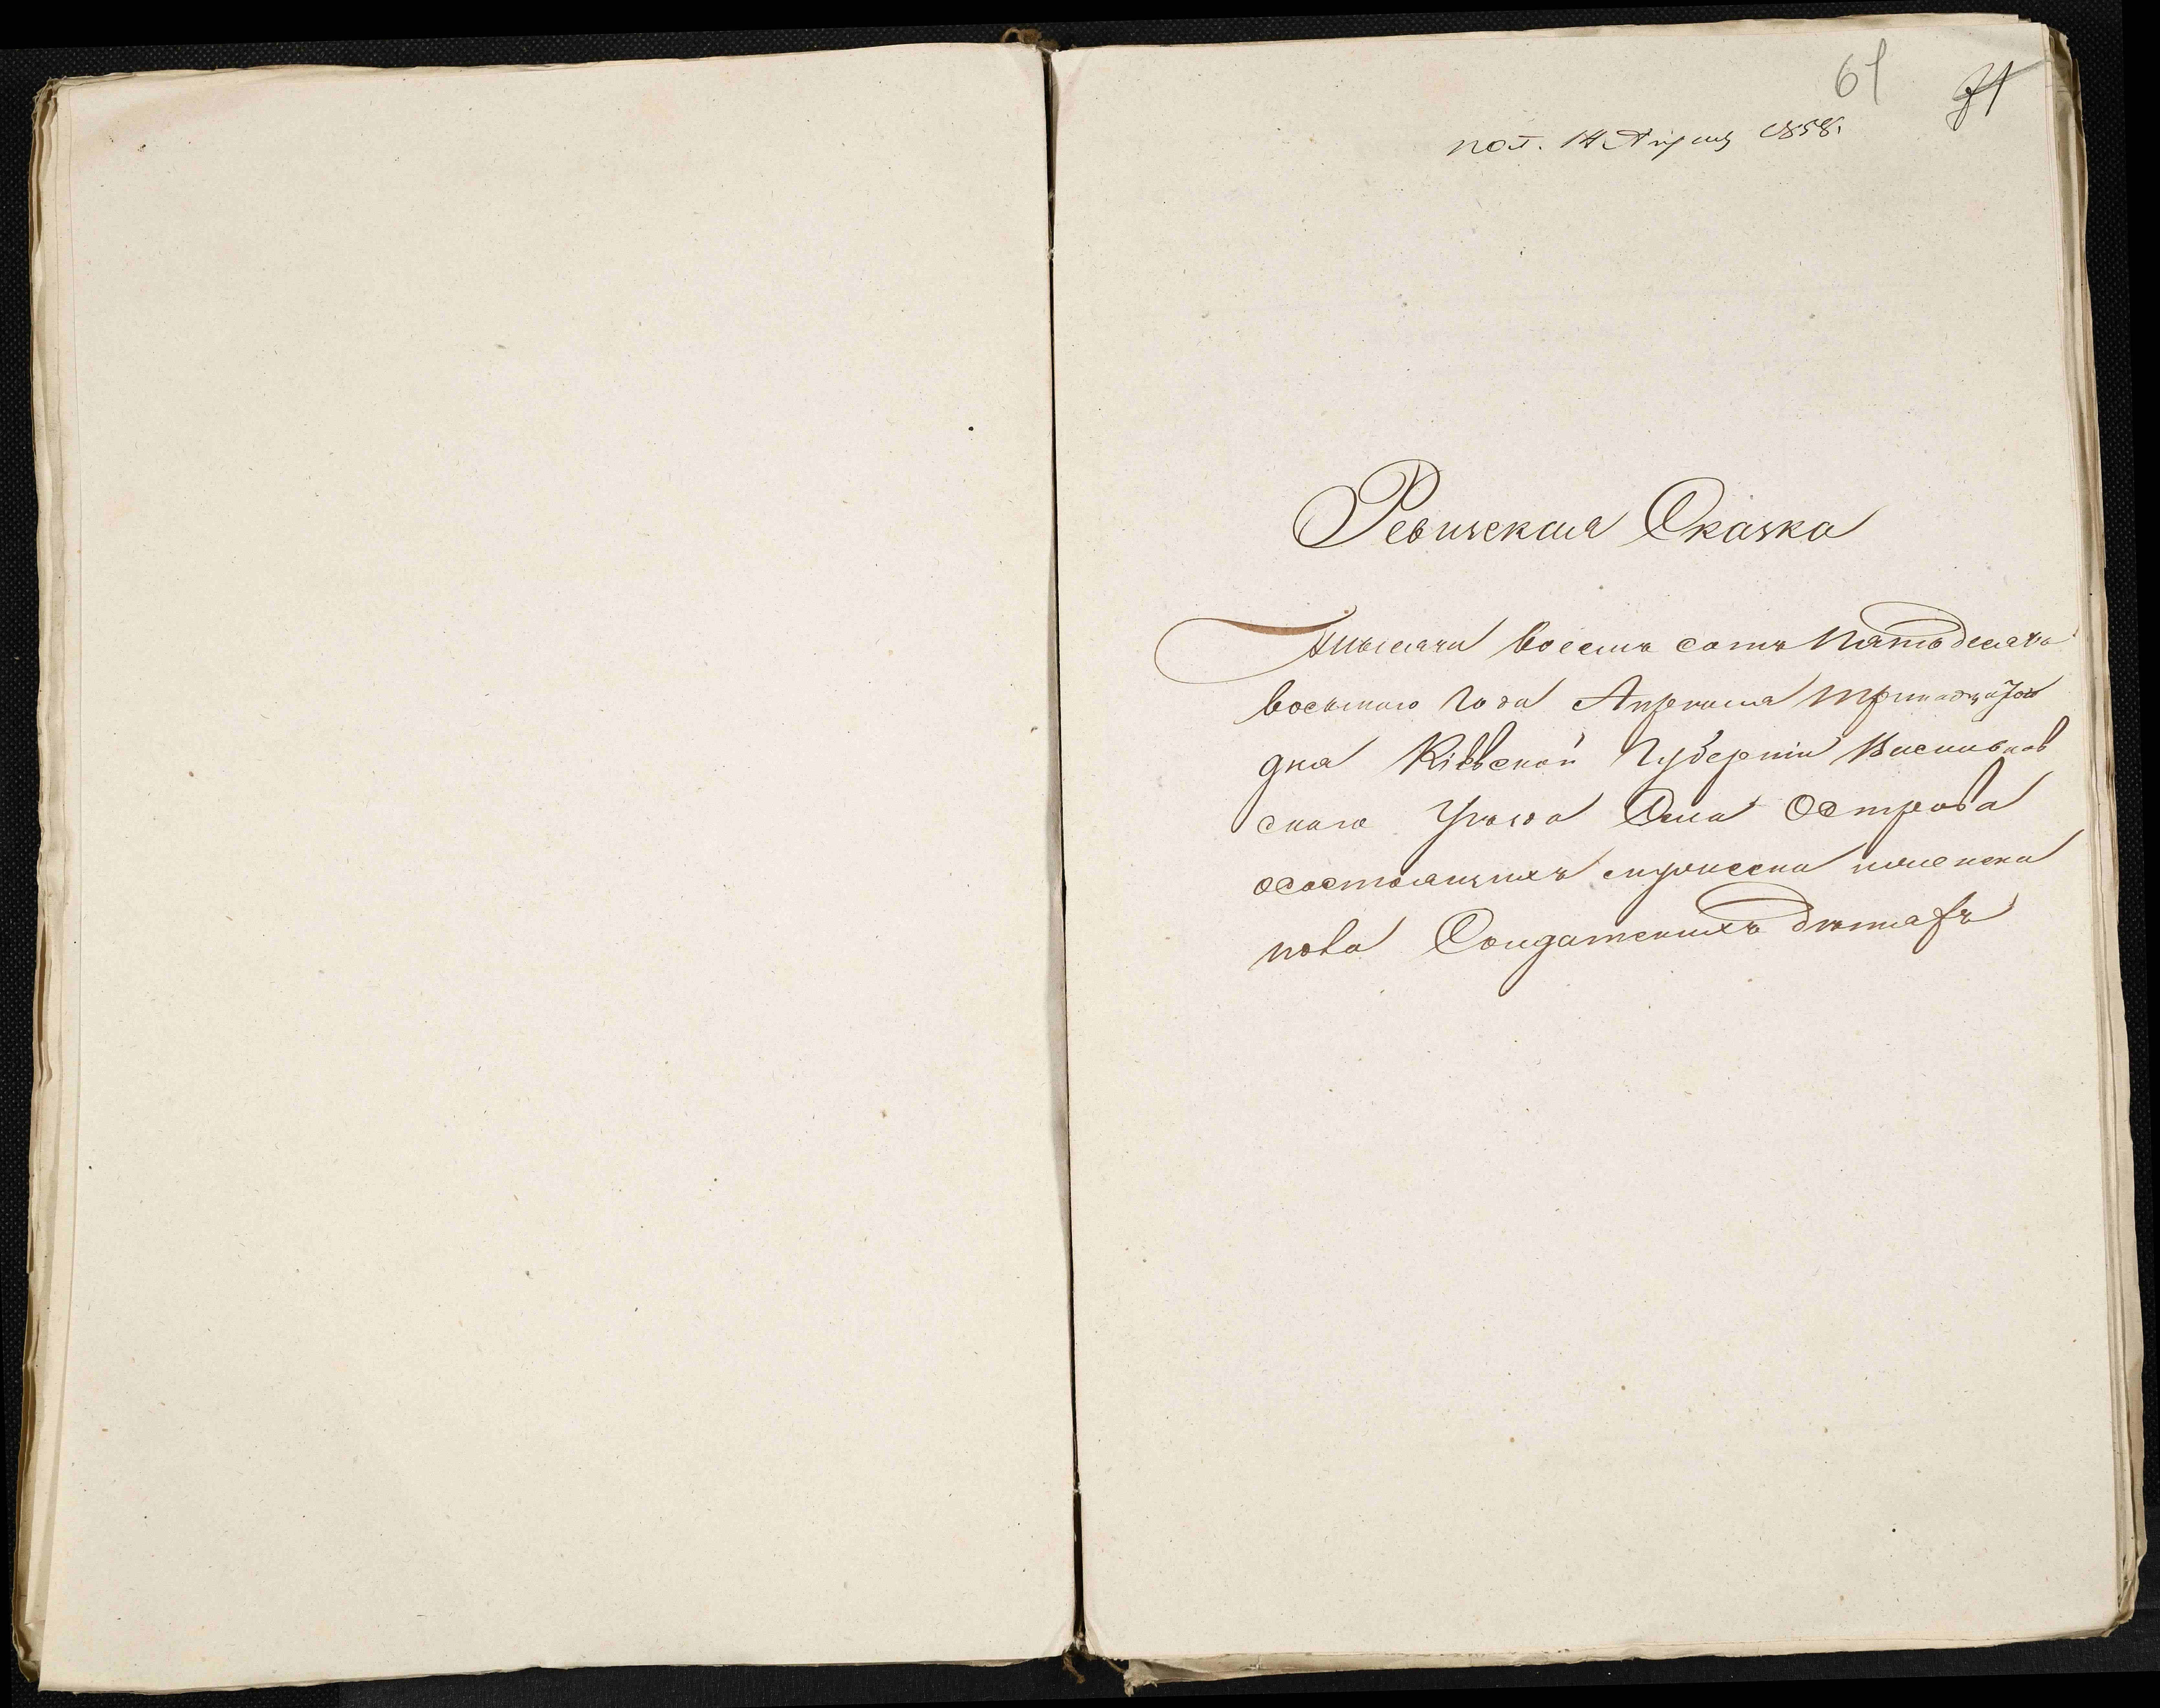 61 71
пол. 14 Апреля 1858.
Ревизская Сказка
Тысяча восемь сотъ Пятьдесятъ
восьмого Года Апреля тринадцатого
дня Кіевской Губерніи Васильков
ского Уезда Села Острова
осостоящихъ мужеска женска
пола Солдатскихъ детяхъ